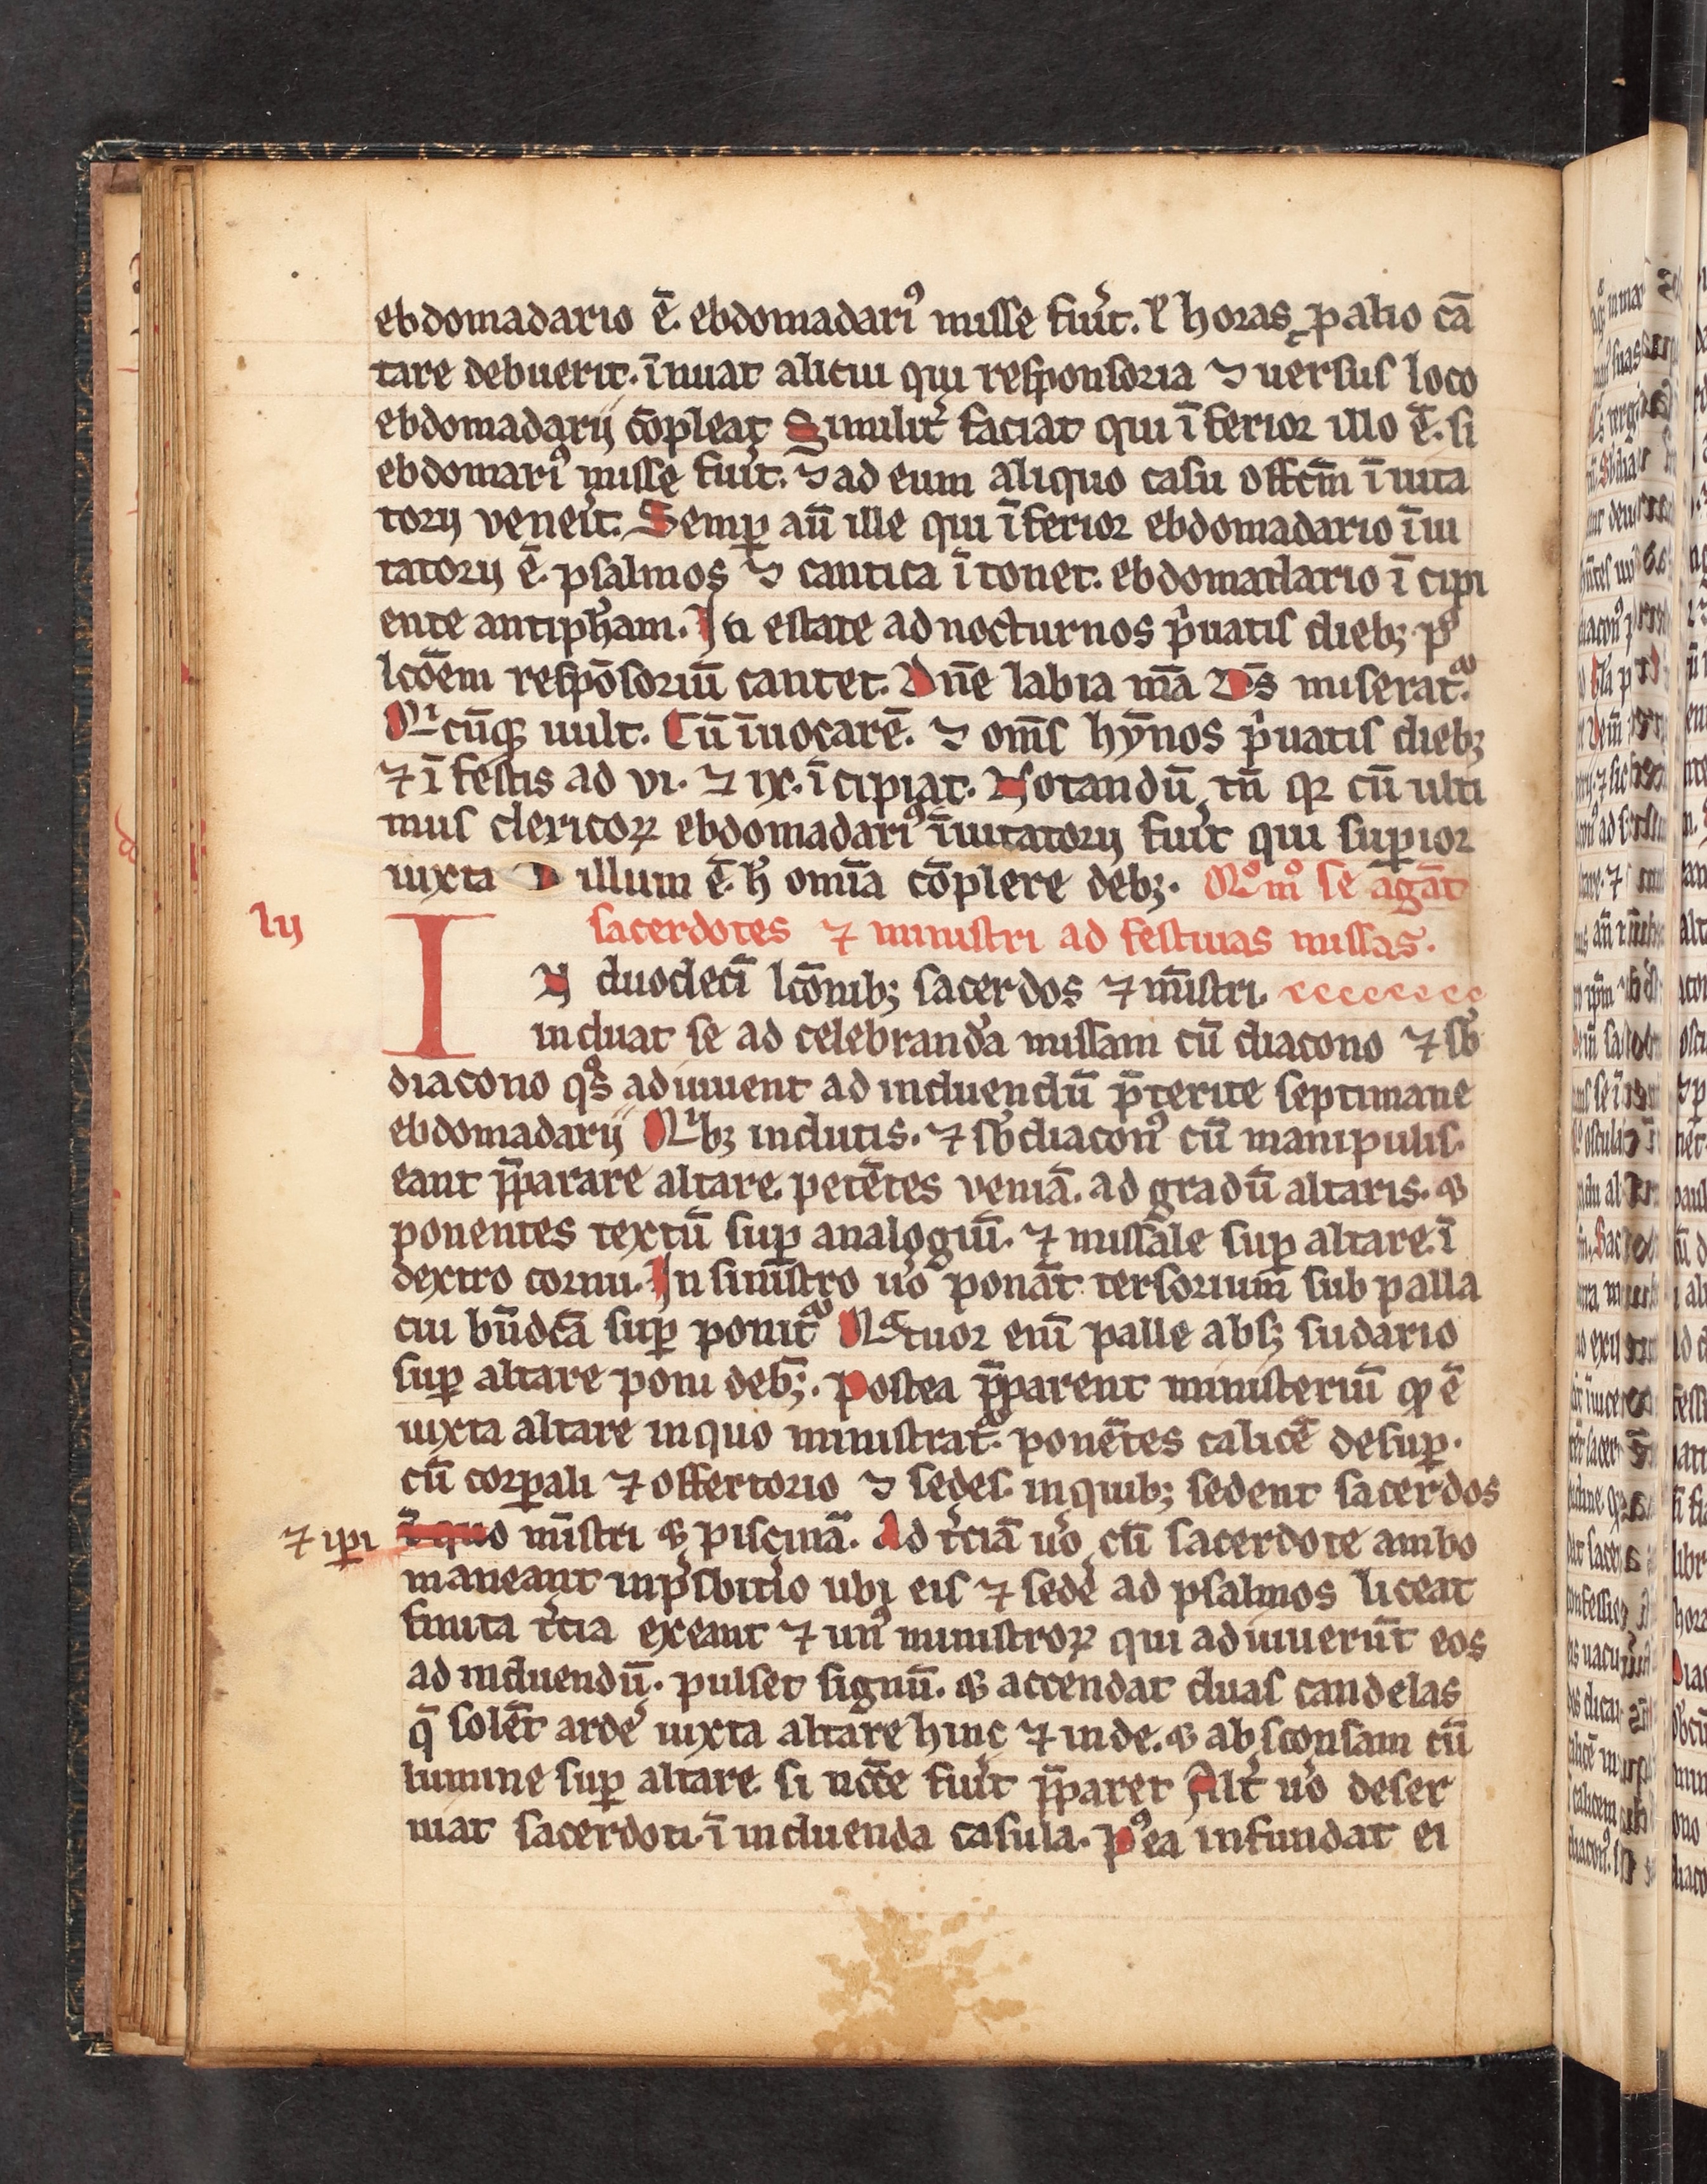 ebdomadario ē. ebdomadariꝰ misse fuīt. ł horas p alio cā
tare debuerit. īnuat alicui qui responsoria ⁊ uersus loco
ebdomadarij cōpleat Similit̄ faciat qui īferior illo ē. si
ebdomariꝰ misse fuīt. ⁊ ad eum aliquo casu offcm̄ īuita
torij veneīt. Semꝑ aū ille qui īferior ebdomadario īui
tatorij ē. psalmos ⁊ cantica ītonet. ebdomadario īcipi
ente antiph̄am. In estate ad nocturnos p̄uatis diebꝫ pꝰ
lcōem respōsoriū cantet. Dn̄e labia m̄a Ds̄ misereat᷑.
Qicūqꝫ uult. Cū īuocarē. ⁊ om̄s hȳnos p̄uatis diebꝫ
⁊ ī festis ad vi. ⁊ ix. īcipiat. Notandū tn̄ qꝛ cū ulti
mus clericoꝝ ebdomadariꝰ īuitatorij fuīt qui suꝑior
iuxta illum ē h̄ omīa cōplere debꝫ. Qͦmͦ se agāt
lij
sacerdotes ⁊ ministri ad festiuas missas.
IN duodecī lcōnibꝫ sacerdos ⁊ mīstri
induat se ad celebrandā missam cū diacono ⁊ sb̄
diacono qͦs adiuuent ad induendū p̄terite septimane
ebdomadarij Qibꝫ indutis. ⁊ sb̄diaconꝰ cū manipulis.
eant p̄parare altare. petētes veniā. ad gradū altaris. ⁊
ponentes textū suꝑ analogiū. ⁊ missale suꝑ altare. ī
dextro cornu. In sinistro u̾o ponāt tersorium sub palla
cui bn̄dcā suꝑ ponit᷑ Qᵃtuor enī palle absꝫ sudario
suꝑ altare poni debꝫ. Postea p̄parent ministeriū qd̄ ē
iuxta altare in quo ministrat᷑. ponētes calicē desuꝑ.
cū corꝑali ⁊ offertorio ⁊ sedes. in quibꝫ sedent sacerdos
⁊ ip̄i ī quo mīstri ⁊ piscinā. Ad t̄ciā u̾o cū sacerdote ambo
maneant in p̄sbit̄io ubi eis ⁊ sedē ad psalmos liceat
finita t̄cia exeant ⁊ unꝰ ministroꝝ qui adiuuerūt eos
ad induendū. pulset signū. ⁊ accendat duas candelas
q̄ solēt ardē iuxta altare hinc ⁊ inde. ⁊ absconsam cū
lumine suꝑ altare. si nēcē fuīt p̄paret Alt̄ u̾o deser
uiat sacerdoti. ī induenda casula. Pꝰea infundat ei